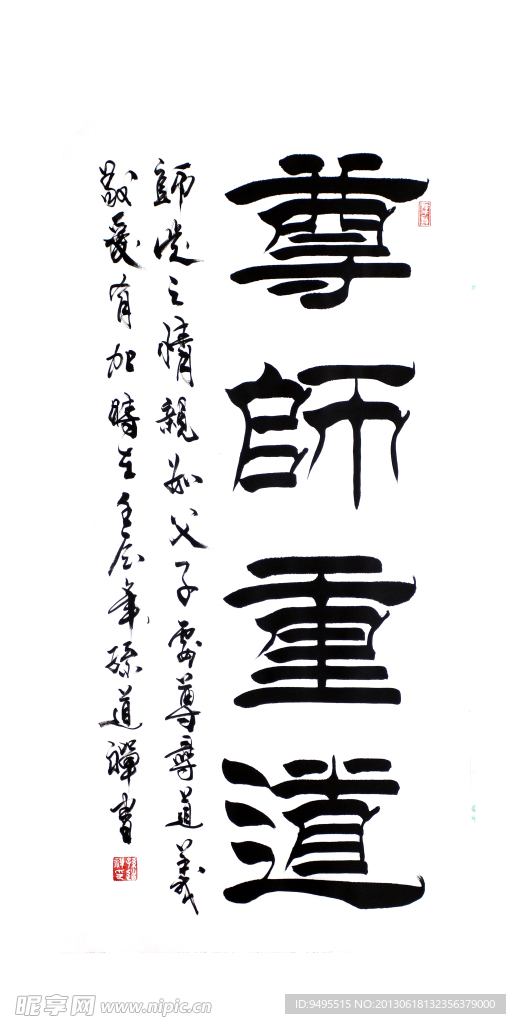 尊師重道
師從之情親如父子需尊尊道義
敬愛有加時在壬辰年孫道禪書
昵享网 www.nipic.cn
ID:9495515 NO:20130618132356379000